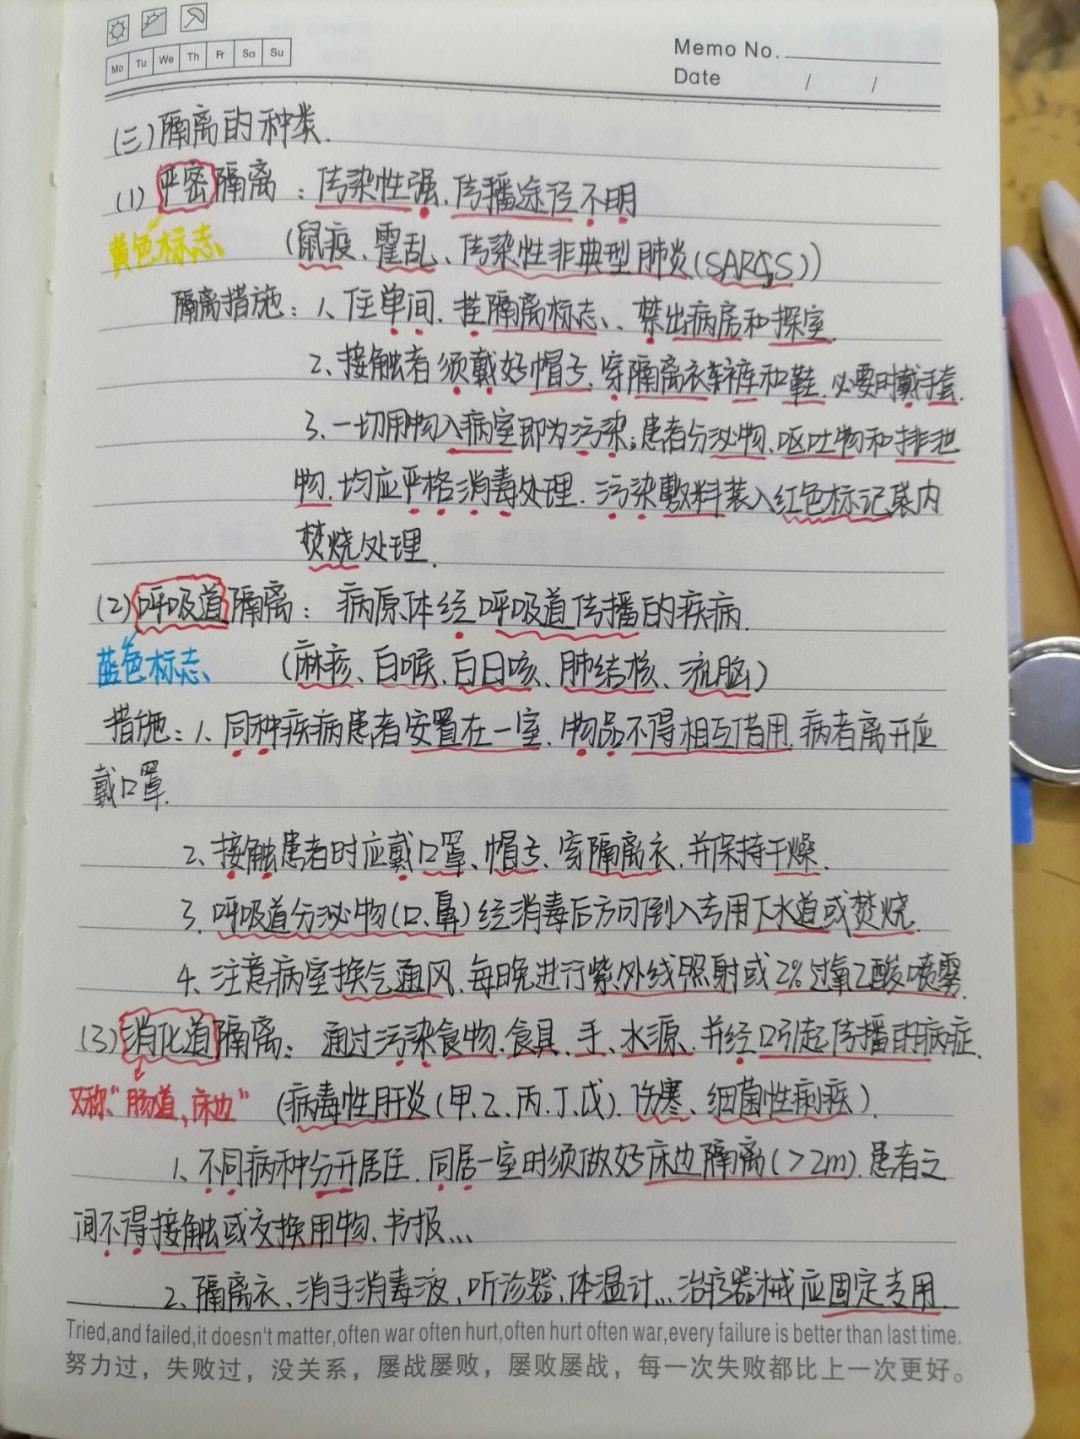 Mo Tu We Th Fr Sa Su
Memo No.
Date / /
(三)隔离的种类.
(1)严密隔离:传染性强、传播途径不明
黄色标志、 (鼠疫、霍乱、传染性非典型肺炎(SARS))
隔离措施:1、住单间、挂隔离标志、禁出病房和探室.
2、接触者须戴好帽子、穿隔离衣裤和鞋.必要时戴手套.
3、一切用物入病室即为污染;患者分泌物、呕吐物和排泄
物、均应严格消毒处理.污染敷料装入红色标记袋内
焚烧处理.
(2)呼吸道隔离:病原体经呼吸道传播的疾病.
蓝色标志、 (麻疹、白喉、百日咳、肺结核、流脑)
措施:1、同种疾病患者安置在一室、物品不得相互借用.病者离开应
戴口罩.
2、接触患者时应戴口罩、帽子、穿隔离衣.并保持干燥.
3.呼吸道分泌物(口、鼻)经消毒后方可倒入专用下水道或焚烧.
4、注意病室换气通风、每日晚进行紫外线照射或2%过氧乙酸喷雾.
(3)消化道隔离:通过污染食物、食具、手、水源、并经口引起传播的病症.
又称"肠道、床边" (病毒性肝炎(甲、乙、丙、丁、戊)、伤寒、细菌性痢疾).
1、不同病种分开居住.同居一室时须做好床边隔离(>2m).患者之
间不得接触或交换用物、书报...
2、隔离衣、消手消毒液、听诊器、体温计...治疗器械应固定专用.
Tried,and failed,it doesn't matter,often war often hurt,often hurt often war,every failure is better than last time.
努力过，失败过，没关系，屡战屡败，屡败屡战，每一次失败都比上一次更好。